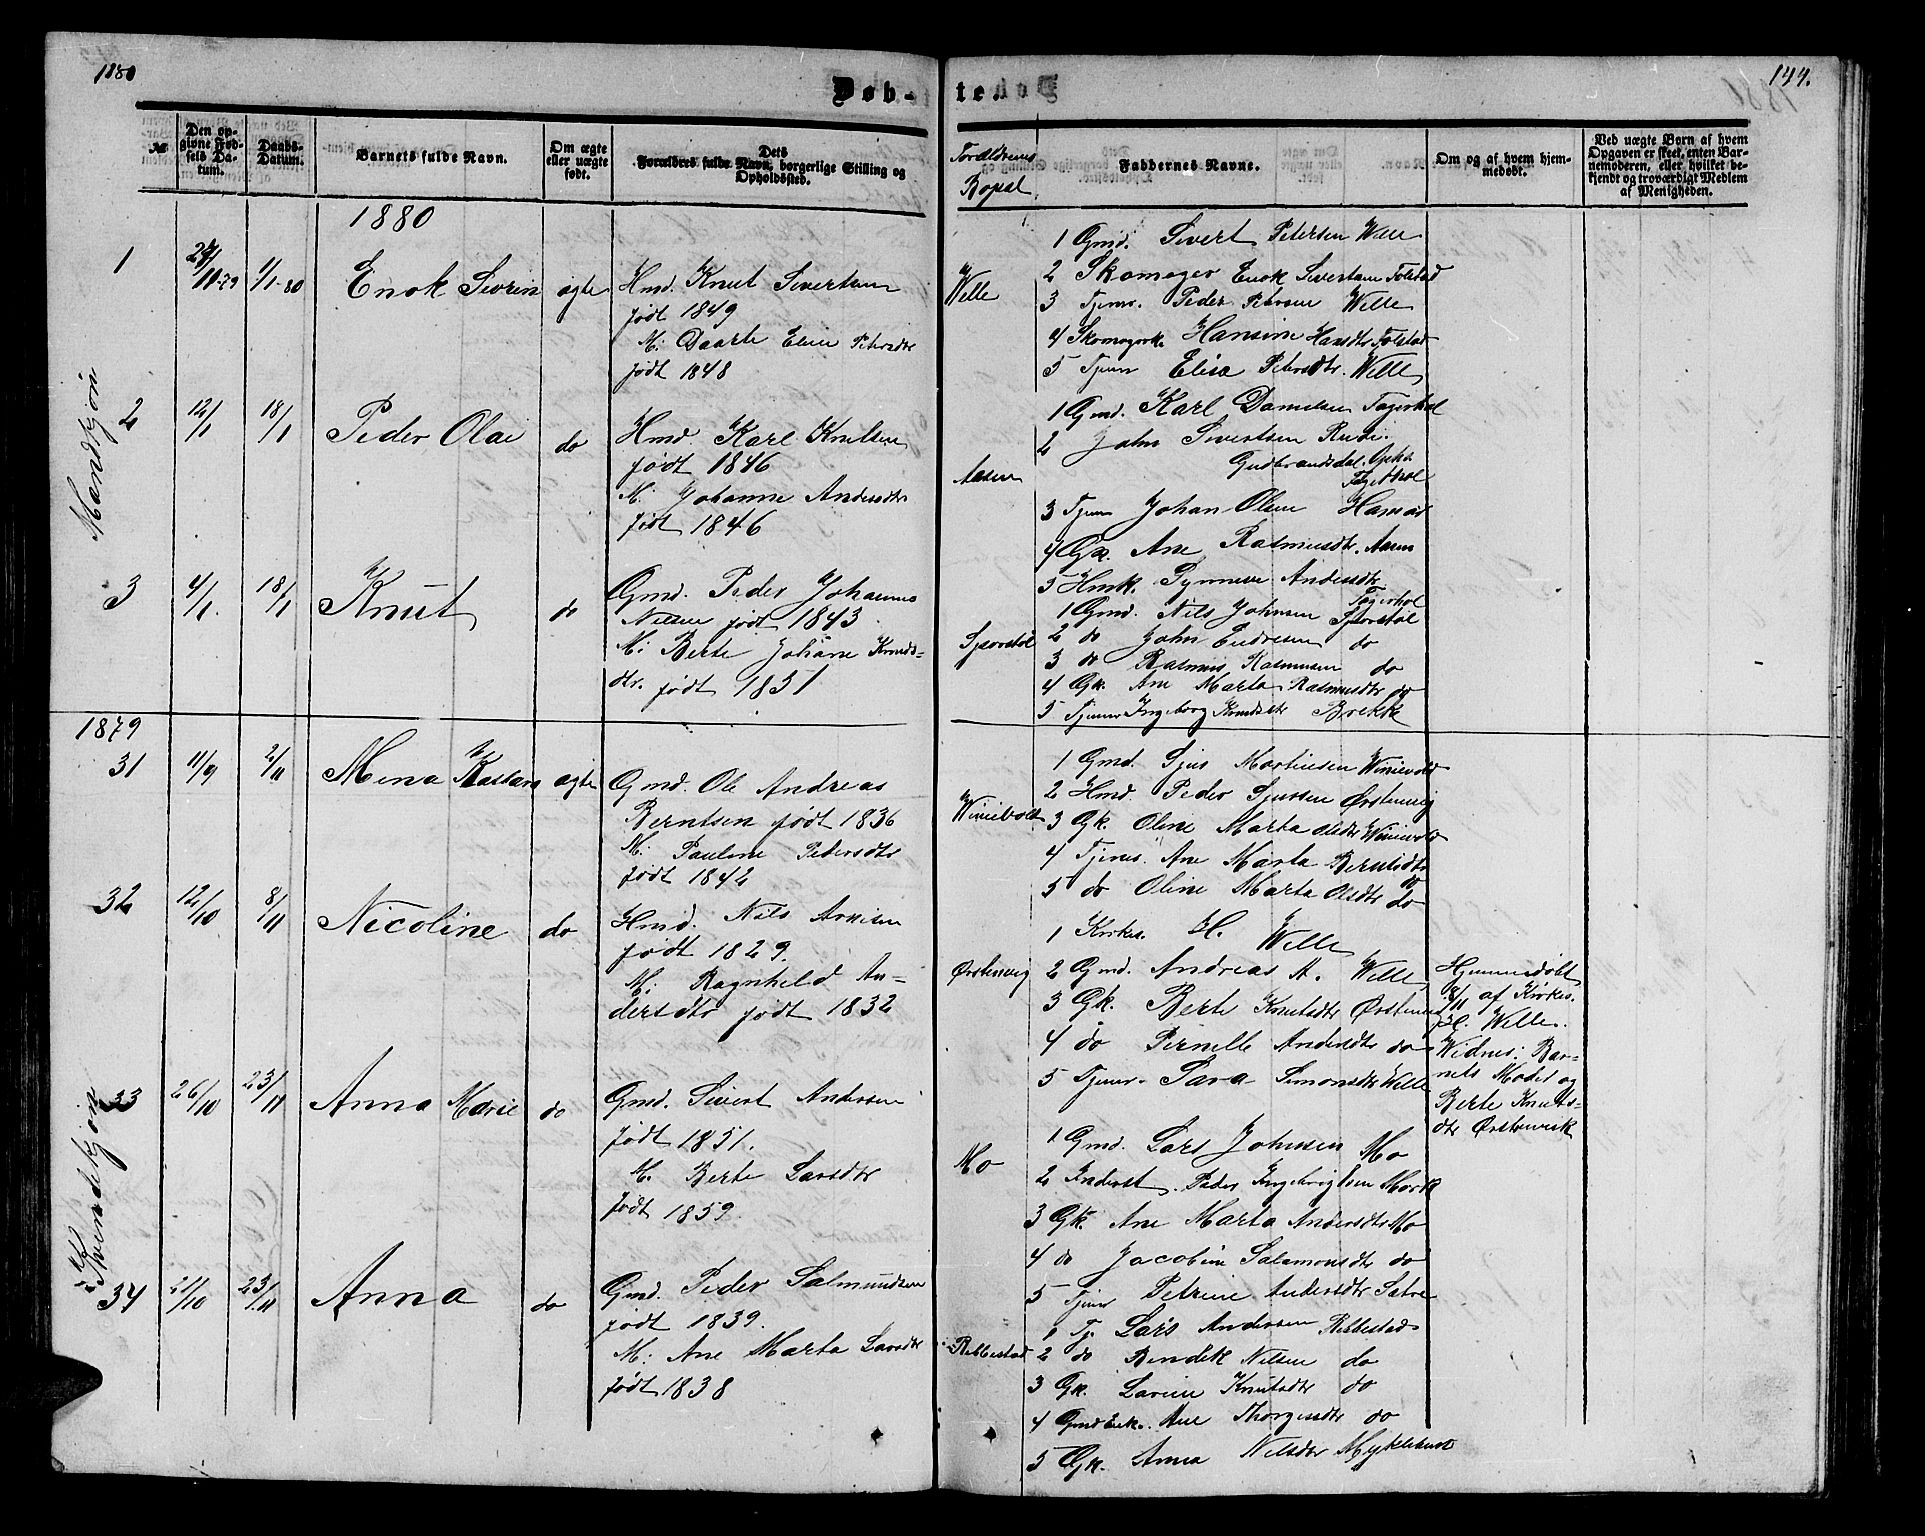 1880
Døb-
te.
144.
№
Den op-
givne Fød-
sels Da-
tum.
Daabs-
Datum.
Barnets fulde Navn.
Om ægte
eller uægte
født.
Dets
Forældres fulde Navn, borgerlige Stilling og
Opholdssted.
Forældrenes
Bopæl
Faddernes Navne.
Om og af hvem hjem-
medøbt.
Ved uægte Børn af hvem
Opgaven er skeet, enten Bar-
nemoderen, eller hvilket be-
kjendt og troværdigt Medlem
af Menigheden.
1880
Mandkjøn
1
11-79
1/1-80
Enok Sivrin
ægte
Hmd. Knut Sivertsen
født 1849
M: Daarte Eline Petersdtr
født 1848
Welle
1 Gmd. Sivert Petersen Welle
2 Skomager Enok Sivertsen Folstad
3 Tjener. Peder Petersen Welle
4 Skomagerke Hansine Hansdtr Folstad
5 Tjener Elisa Petersdtr. Welle
2
12/1
18/1
Peder Olai
do
Hmd Karl Knutsen
født 1846
M: Johanne Andersdtr
født 1846
Aasen
1 Gmd. Karl Danielsen Fagerhol
2 John Sivertsen Rusti
Gudbrandsdal. Opha
Fagerhol
3 Tjener Johan Olsen Hamar
4 Gk. Ane Rasmusdtr. Aasen
5 Hmk. Synneve Andersdtr.
Fagerhol
3
4/1.
18/1
Knut
do
Gmd. Peder Johannes
Nilsen født 1843.
M: Berte Johane Knuds-
dtr. født 1851
Sjaarstøl
1 Gmd. Nils Johnsen Sjaarstøl
2 do John Endresen do
3 do Rasmus Rasmusen do
4 Gk. Ane Marta Rasmusdtr do
5 Tjener Ingeborg Knudsdtr Brekke
1879
31
11/9
2/11
Mina Kastara
ægte
Gmd. Ole Andreas
Berntsen født 1836
M: Pauline Pedersdtr
født 1842
Winievold
1 Gmd. Sjur Martinsen Winievold
2 Hmd. Peder Sjursen Ørstenvig
3 Gk. Oline Marta Olsdtr Winievold
4 Tjener. Ane Marta Berntsdtr
do
5 do Oline Marta Olsdtr do
32
12/10
8/11
Nicoline
do
Hmd. Nils Arnesen
født 1829.
M: Ragnhild An-
dersdtr født 1832
Ørstenvig
1 Kirkes. H. Welle
2 Gmd. Andreas A. Welle
3 Gk. Berte Knutsdtr Ørstenvig
4 do Pernelle Andersdtr do
5 Tjener. Sara Simonsdtr Welle
Hjemmedøbt
8/11 af Kirkes.
H. Welle.
Widner: Bar-
nets Moder og
Berte Knuts-
dtr Ørstenvik
Kvindekjøn
33
26/10
23/11
Anna Marie
do
Gmd. Sivert Andersen
født 1851.
M. Berte Larsdtr
født 1859.
Mo
1 Gmd. Lars Johnsen Mo
2 Inderst. Peder Ingebrigtsen Mork
3 Gk. Ane Marta Andersdtr Mo
4 do Jacobine Salamonsdtr do
5 Tjener Petrine Andersdtr Satre
34
21/10
23/11
Anna
do
Gmd. Peder Salmundsen
født 1839.
M: Ane Marta Larsdtr
født 1838
Ribbestad
1 Tj. Lars Andersen Ribbestad
2 do Bendik Nilsen do
3 Gk. Lavine Knutsdtr do
4 Gmd Enk. Ane Thorgersdtr do
5 Gk. Anna Nilsdtr Myklebust